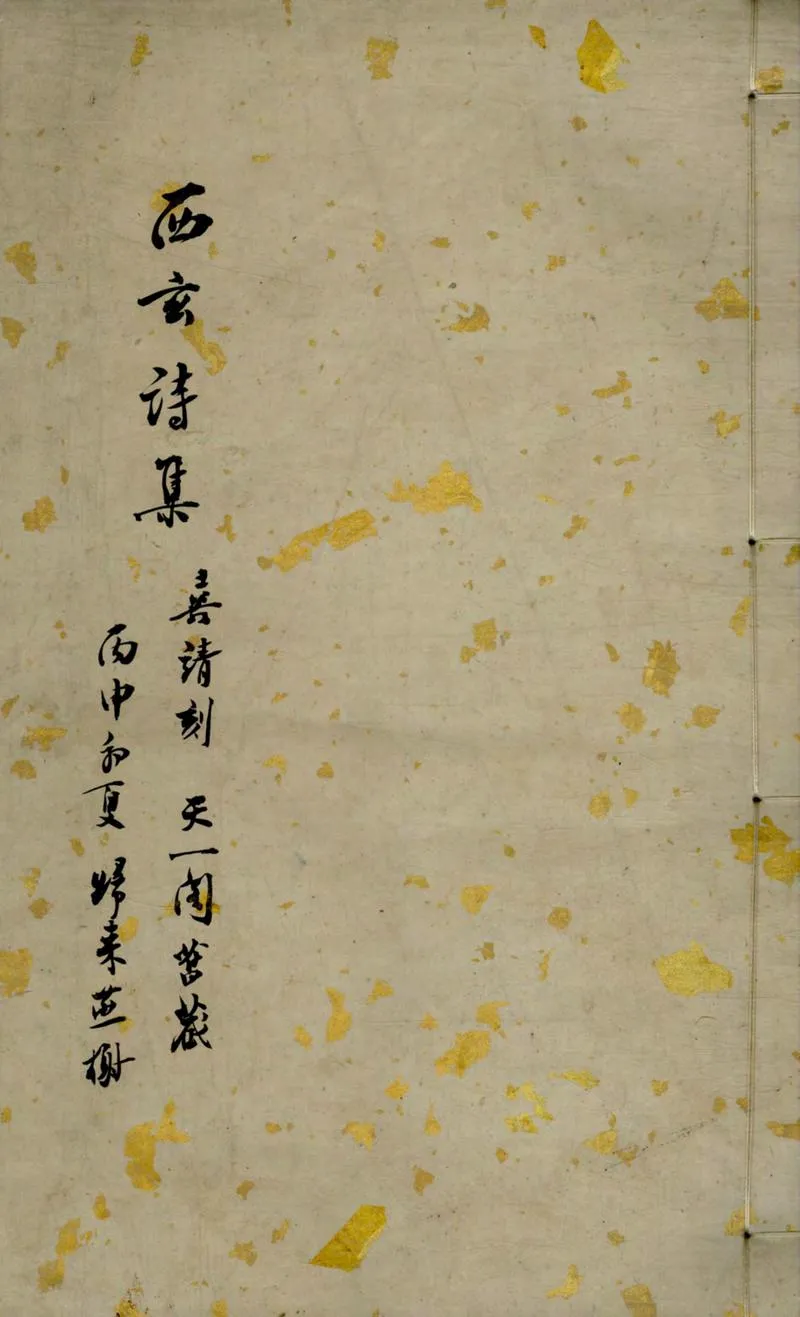 西玄詩集
嘉靖刻 天一閣舊藏
丙申初夏歸來燕榭